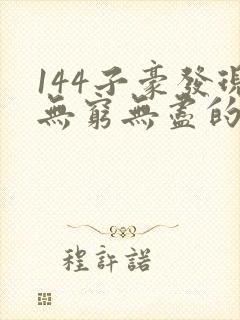 144子豪發現
無窮無盡的
程許諾